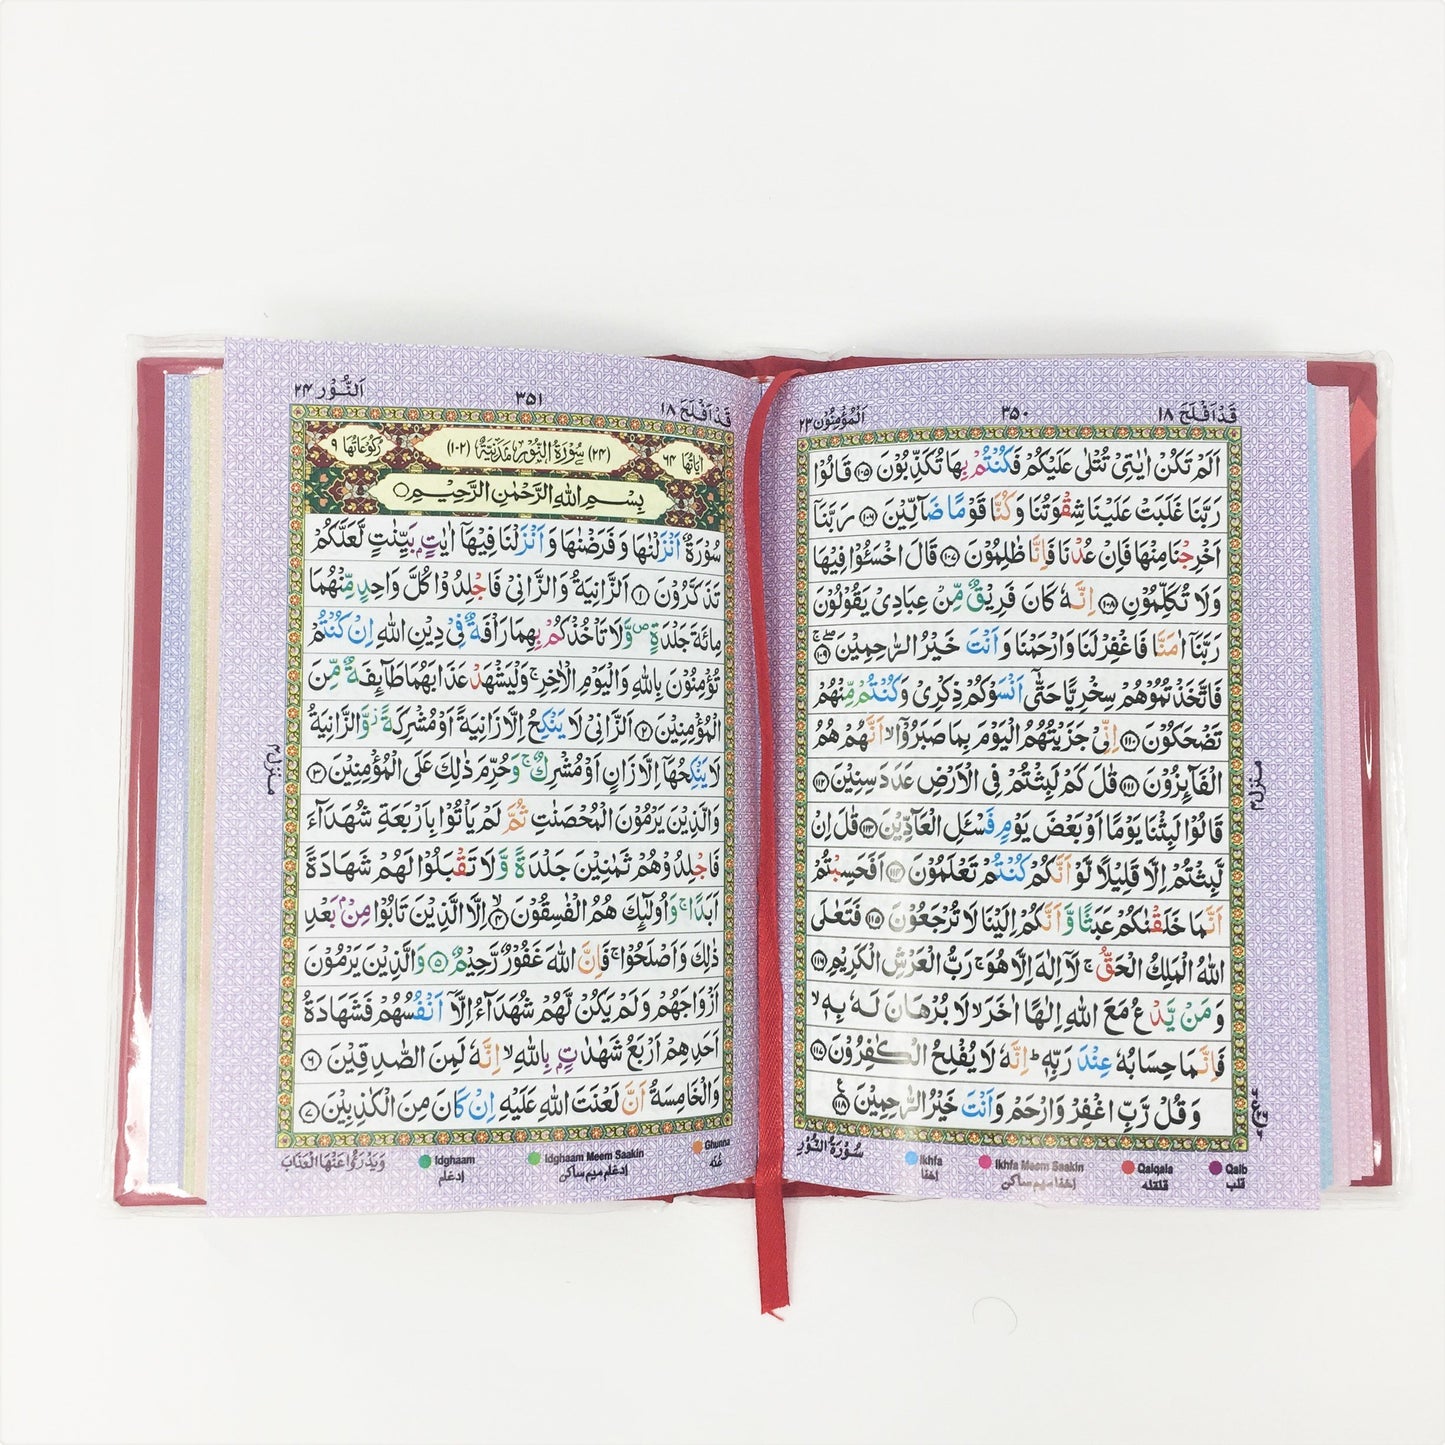 قَدْ اَفْلَحَ ١٨
٣٥٠
اَلْمُؤْمِنُوْن ٢٣
اَلَمْ تَكُنْ اٰيٰتِيْ تُتْلٰى عَلَيْكُمْ فَكُنْتُمْ بِهَا تُكَذِّبُوْنَ ١٠٥ قَالُوْا
رَبَّنَا غَلَبَتْ عَلَيْنَا شِقْوَتُنَا وَكُنَّا قَوْمًا ضَآلِّيْنَ ١٠٦ رَبَّنَآ
اَخْرِجْنَا مِنْهَا فَاِنْ عُدْنَا فَاِنَّا ظٰلِمُوْنَ ١٠٧ قَالَ اخْسَـُٔوْا فِيْهَا
وَلَا تُكَلِّمُوْنِ ١٠٨ اِنَّهٗ كَانَ فَرِيْقٌ مِّنْ عِبَادِيْ يَقُوْلُوْنَ
رَبَّنَآ اٰمَنَّا فَاغْفِرْ لَنَا وَارْحَمْنَا وَاَنْتَ خَيْرُ الرّٰحِمِيْنَ ١٠٩
فَاتَّخَذْتُمُوْهُمْ سِخْرِيًّا حَتّٰٓى اَنْسَوْكُمْ ذِكْرِيْ وَكُنْتُمْ مِّنْهُمْ
تَضْحَكُوْنَ ١١٠ اِنِّيْ جَزَيْتُهُمُ الْيَوْمَ بِمَا صَبَرُوْٓا اَنَّهُمْ هُمُ
الْفَآئِزُوْنَ ١١١ قٰلَ كَمْ لَبِثْتُمْ فِي الْاَرْضِ عَدَدَ سِنِيْنَ ١١٢
قَالُوْا لَبِثْنَا يَوْمًا اَوْ بَعْضَ يَوْمٍ فَسْـَٔلِ الْعَآدِّيْنَ ١١٣ قٰلَ اِنْ
لَّبِثْتُمْ اِلَّا قَلِيْلًا لَّوْ اَنَّكُمْ كُنْتُمْ تَعْلَمُوْنَ ١١٤ اَفَحَسِبْتُمْ
اَنَّمَا خَلَقْنٰكُمْ عَبَثًا وَّاَنَّكُمْ اِلَيْنَا لَا تُرْجَعُوْنَ ١١٥ فَتَعٰلَى
اللّٰهُ الْمَلِكُ الْحَقُّ ۚ لَآ اِلٰهَ اِلَّا هُوَ ۚ رَبُّ الْعَرْشِ الْكَرِيْمِ ١١٦
وَمَنْ يَّدْعُ مَعَ اللّٰهِ اِلٰهًا اٰخَرَ ۙ لَا بُرْهَانَ لَهٗ بِهٖ ۙ
فَاِنَّمَا حِسَابُهٗ عِنْدَ رَبِّهٖ ؕ اِنَّهٗ لَا يُفْلِحُ الْكٰفِرُوْنَ ١١٧
وَقُلْ رَّبِّ اغْفِرْ وَارْحَمْ وَاَنْتَ خَيْرُ الرّٰحِمِيْنَ ١١٨
منزل٤
سُوْرَةُ النُّوْرِ
Ikhfa
اخفا
Ikhfa Meem Saakin
اخفا میم ساکن
Qalqala
قلقله
Qalb
قلب
قَدْ اَفْلَحَ ١٨
٣٥١
اَلنُّوْر ٢٤
اٰيَاتُهَا ٦٤
(٢٤) سُوْرَةُ النُّوْرِ مَدَنِيَّةٌ (١٠٢)
رُكُوْعَاتُهَا ٩
بِسْمِ اللّٰهِ الرَّحْمٰنِ الرَّحِيْمِ
سُوْرَةٌ اَنْزَلْنٰهَا وَفَرَضْنٰهَا وَاَنْزَلْنَا فِيْهَآ اٰيٰتٍۭ بَيِّنٰتٍ لَّعَلَّكُمْ
تَذَكَّرُوْنَ ١ اَلزَّانِيَةُ وَالزَّانِيْ فَاجْلِدُوْا كُلَّ وَاحِدٍ مِّنْهُمَا
مِائَةَ جَلْدَةٍ ۪ وَّلَا تَاْخُذْكُمْ بِهِمَا رَاْفَةٌ فِيْ دِيْنِ اللّٰهِ اِنْ كُنْتُمْ
تُؤْمِنُوْنَ بِاللّٰهِ وَالْيَوْمِ الْاٰخِرِ ۚ وَلْيَشْهَدْ عَذَابَهُمَا طَآئِفَةٌ مِّنَ
الْمُؤْمِنِيْنَ ٢ اَلزَّانِيْ لَا يَنْكِحُ اِلَّا زَانِيَةً اَوْ مُشْرِكَةً ؗ وَّالزَّانِيَةُ
لَا يَنْكِحُهَآ اِلَّا زَانٍ اَوْ مُشْرِكٌ ۚ وَحُرِّمَ ذٰلِكَ عَلَى الْمُؤْمِنِيْنَ ٣
وَالَّذِيْنَ يَرْمُوْنَ الْمُحْصَنٰتِ ثُمَّ لَمْ يَاْتُوْا بِاَرْبَعَةِ شُهَدَآءَ
فَاجْلِدُوْهُمْ ثَمٰنِيْنَ جَلْدَةً وَّلَا تَقْبَلُوْا لَهُمْ شَهَادَةً
اَبَدًا ۚ وَاُولٰٓئِكَ هُمُ الْفٰسِقُوْنَ ٤ اِلَّا الَّذِيْنَ تَابُوْا مِنْۢ بَعْدِ
ذٰلِكَ وَاَصْلَحُوْا ۚ فَاِنَّ اللّٰهَ غَفُوْرٌ رَّحِيْمٌ ٥ وَالَّذِيْنَ يَرْمُوْنَ
اَزْوَاجَهُمْ وَلَمْ يَكُنْ لَّهُمْ شُهَدَآءُ اِلَّآ اَنْفُسُهُمْ فَشَهَادَةُ
اَحَدِهِمْ اَرْبَعُ شَهٰدٰتٍۭ بِاللّٰهِ ۙ اِنَّهٗ لَمِنَ الصّٰدِقِيْنَ ٦
وَالْخَامِسَةُ اَنَّ لَعْنَتَ اللّٰهِ عَلَيْهِ اِنْ كَانَ مِنَ الْكٰذِبِيْنَ ٧
منزل٤
وَيَدْرَؤُا عَنْهَا الْعَذَابَ
Idghaam
ادغام
Idghaam Meem Saakin
ادغام میم ساکن
Ghunna
غنّه